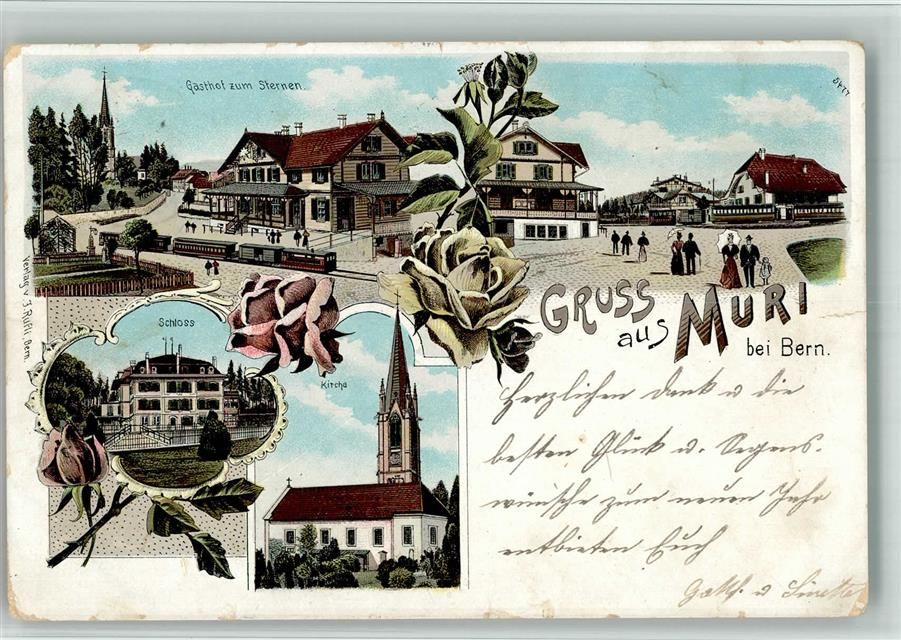 Gasthof zum Sternen.
5477
Verlag v. J. Rüfli, Bern.
Schloss
Kirche
GRUSS
aus MURI
bei Bern.
Herzlichen Dank u die
besten Glück u. Segens-
wünsche zum neuen Jahr
entbieten Euch
Gotth. u